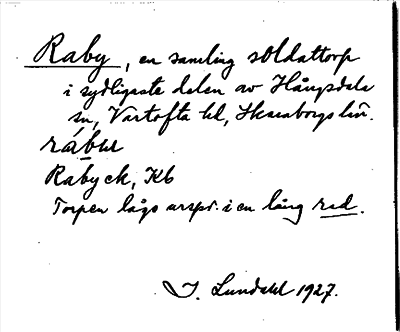 Raby, en samling soldattorp
i sydligaste delen av Hångsdala
sn, Vartofta hd, Skaraborgs län.
Rabyck, Kb
Torpen lågo urspr. i en lång rad.
J. Lundahl 1927.